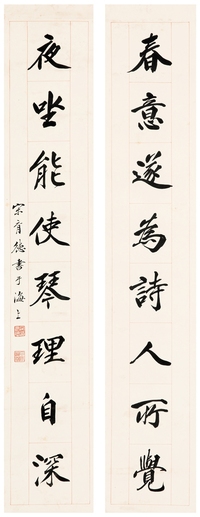 春意遂為詩人所覺
夜坐能使琴理自深
宋育德書于海上